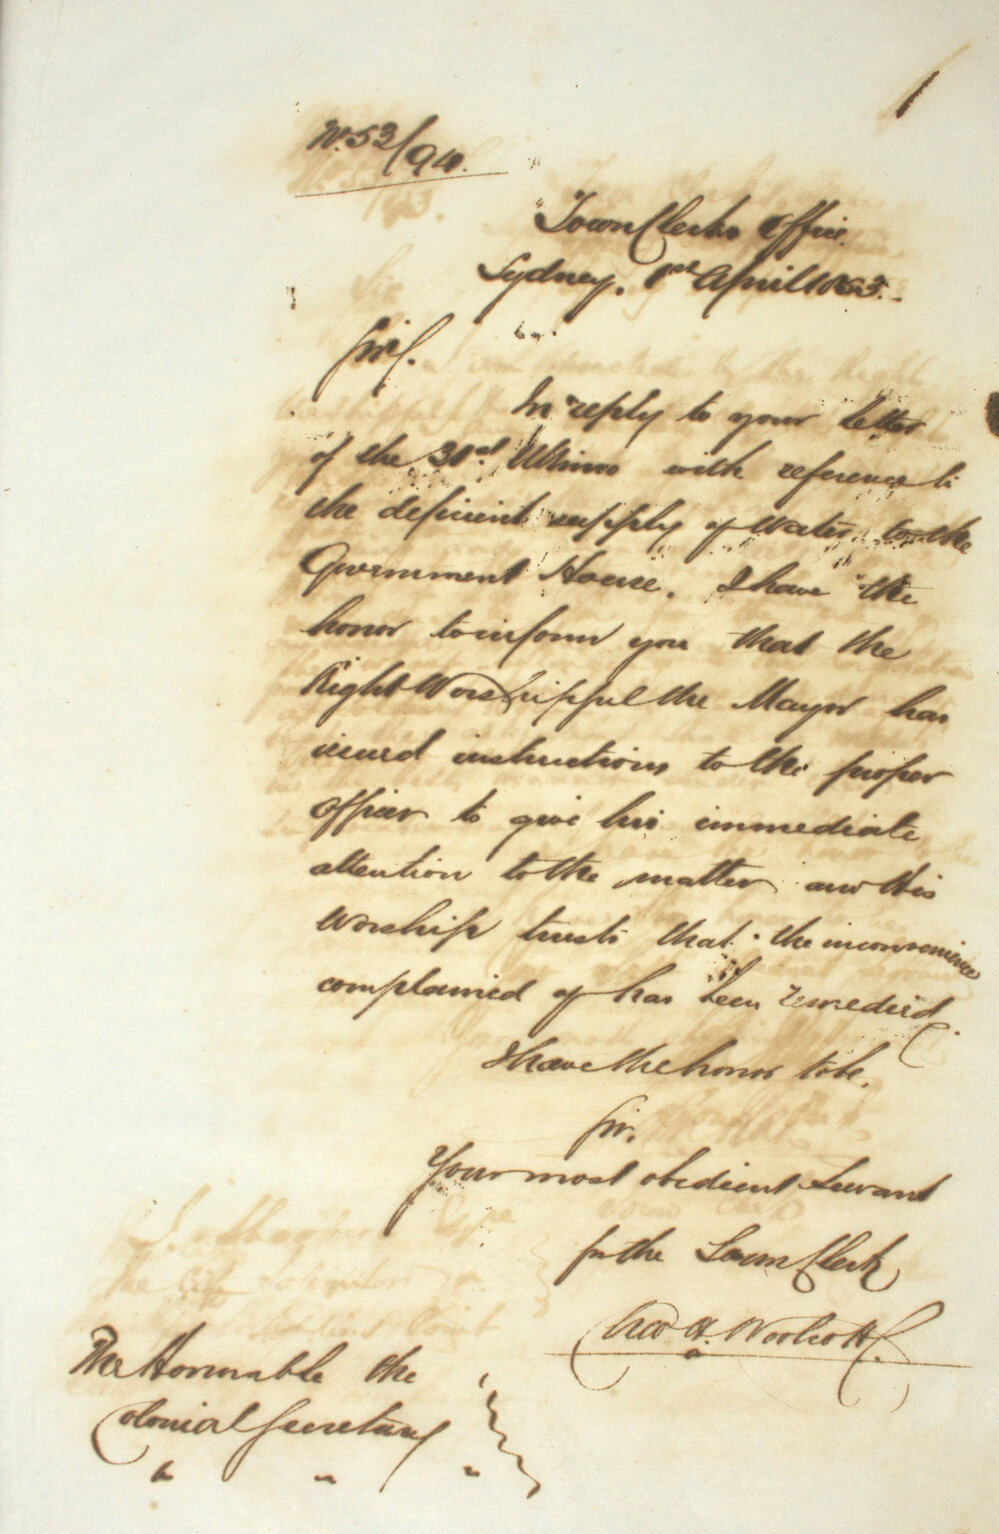 1
No. 53/94.
Town Clerks Office
Sydney, 1st April 1853.
Sir,
In reply to your letter
of the 31st Ultimo with reference to
the deficient supply of Water to the
Government House. I have the
honor to inform you that the
Right Worshipful the Mayor has
issued instructions to the proper
Officer to give his immediate
attention to the matter and His
Worship trusts that the inconvenience
complained of has been remedied.
I have the honor to be,
Sir,
Your most obedient Servant
for the Town Clerk
Chas H. Woolcott
The Honorable the
Colonial Secretary
" " "